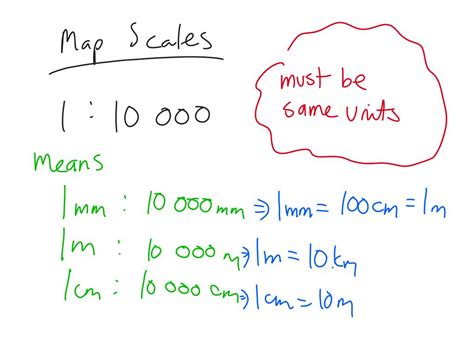 Map Scales
must be
same units
1 : 10 000
Means
1mm : 10 000mm ⇒ 1mm = 100cm = 1m
1m : 10 000m ⇒ 1m = 10.km
1cm : 10 000 cm ⇒ 1cm = 10m